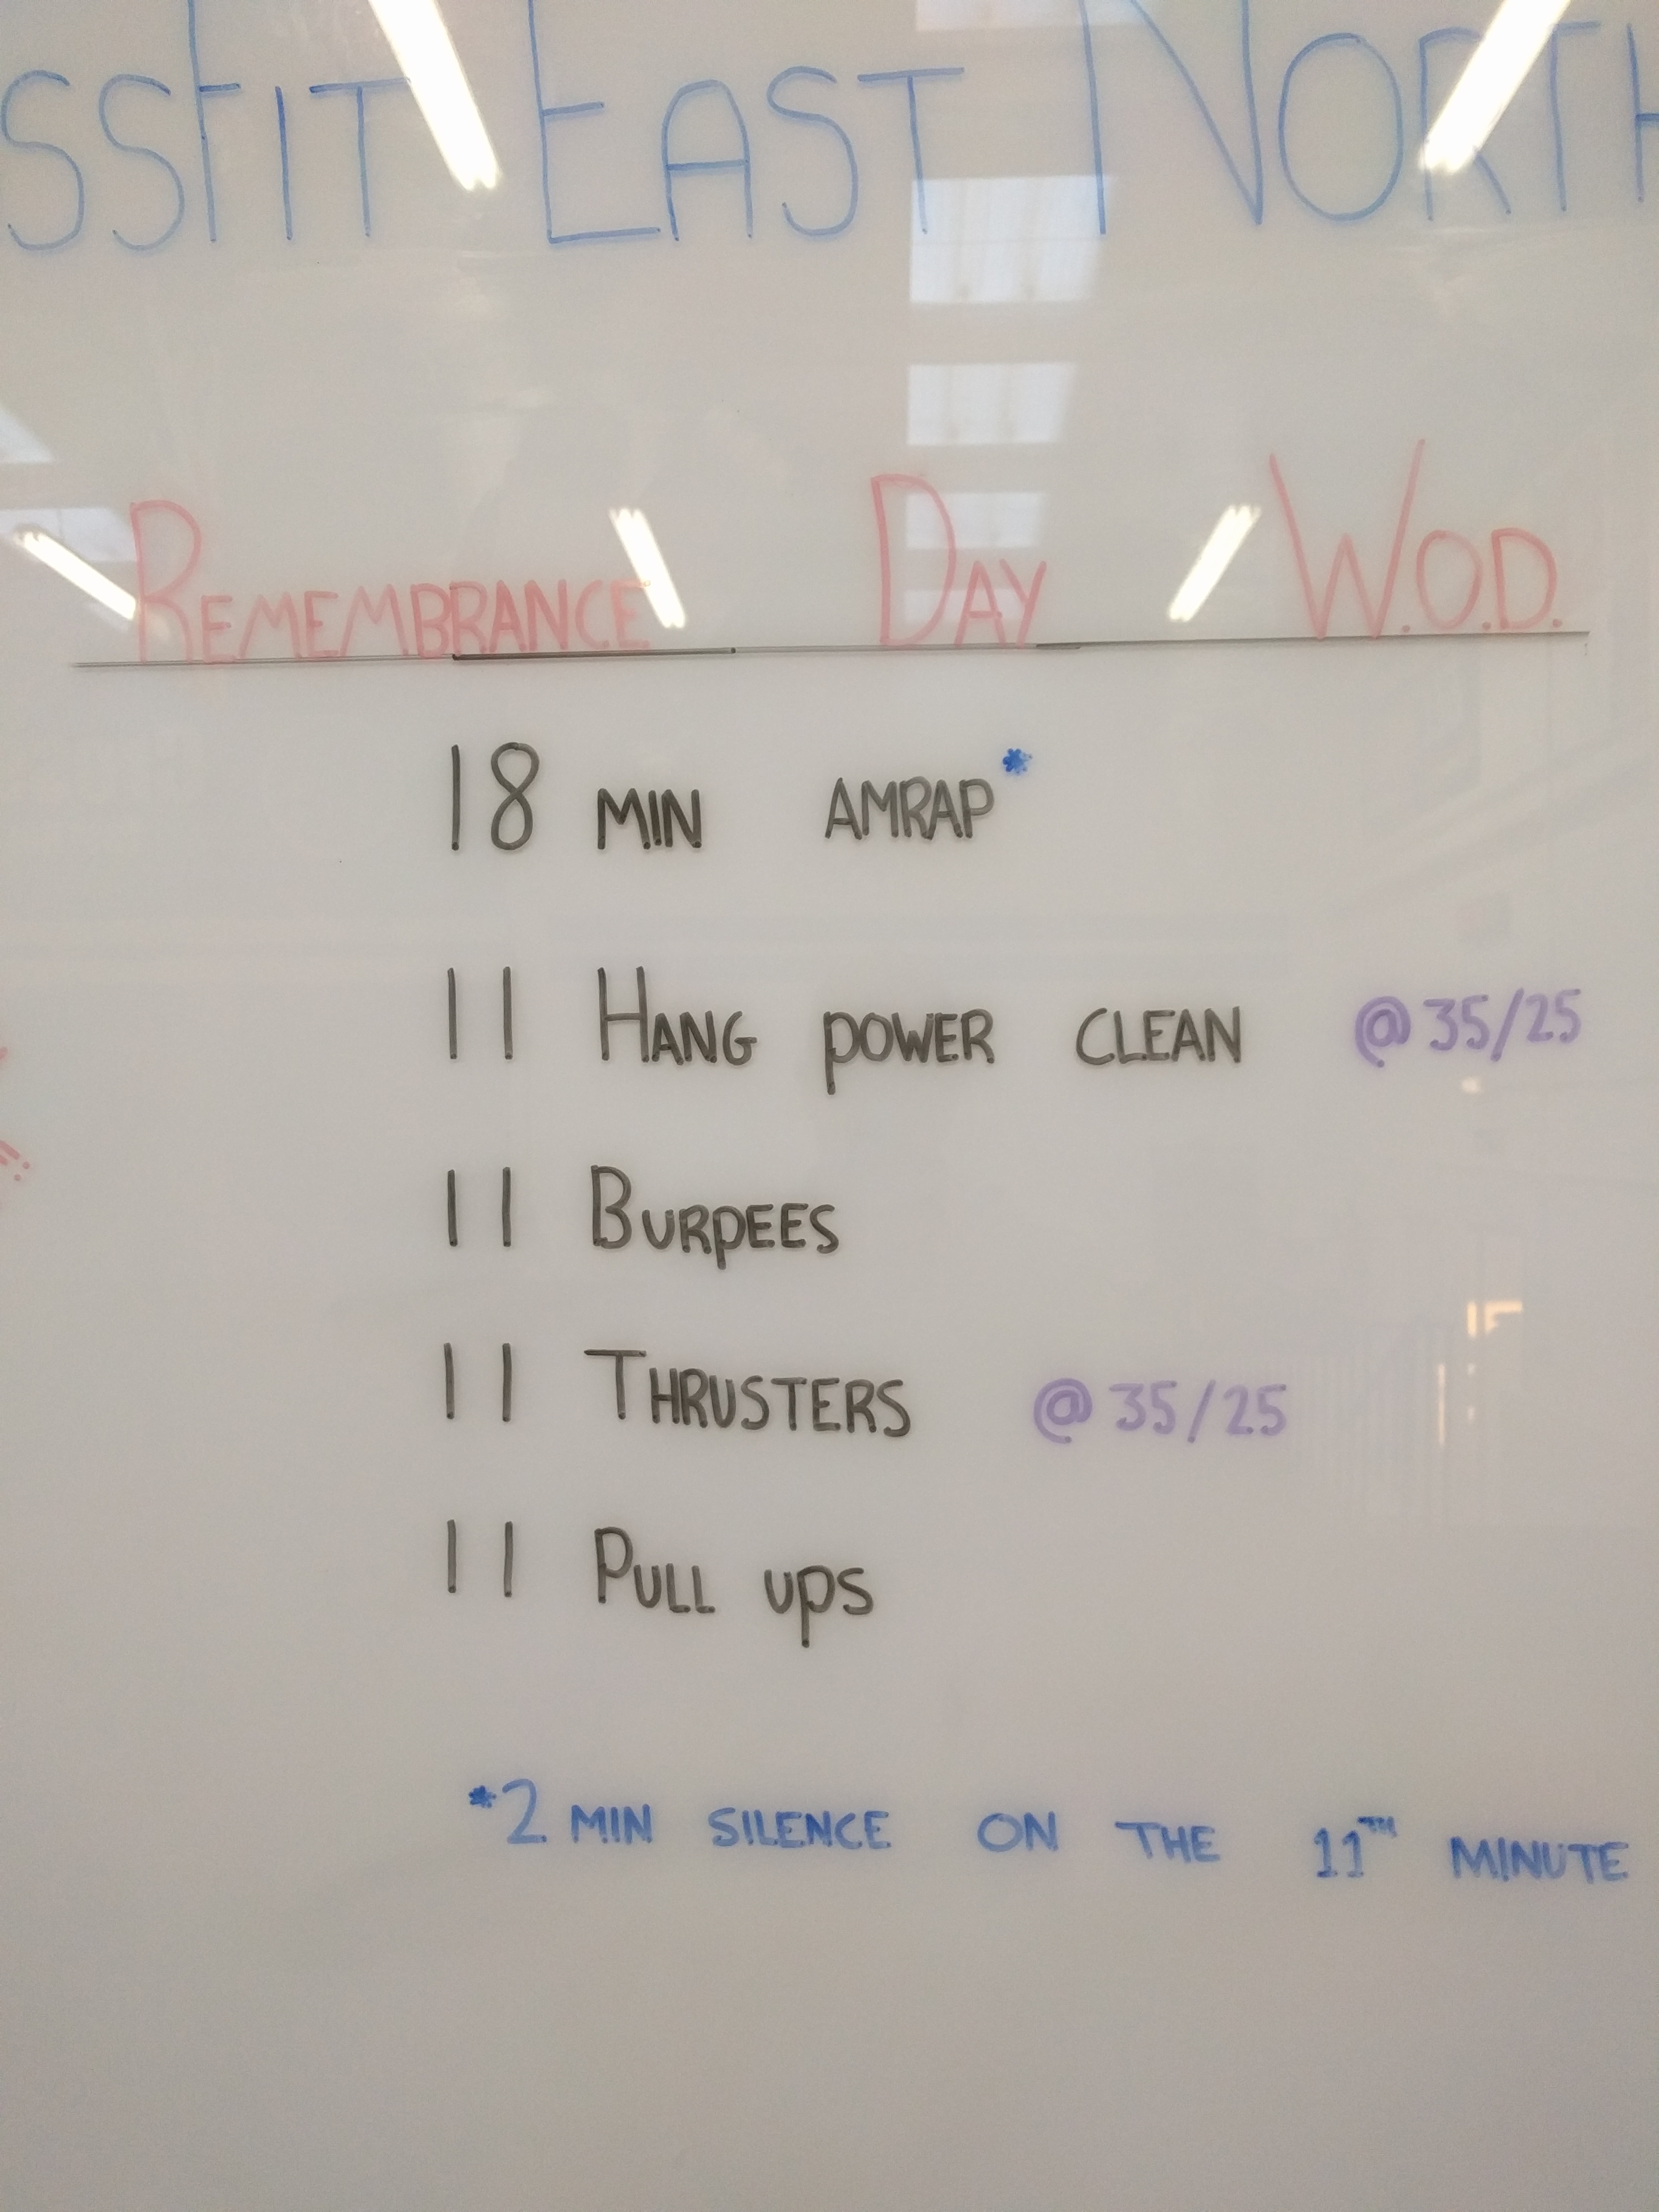 ssFit East North
Remembrance Day W.O.D.
18 min AMRAP*
11 Hang power clean @ 35/25
11 Burpees
11 Thrusters @ 35/25
11 Pull ups
*2 MIN SILENCE ON THE 11TH MINUTE